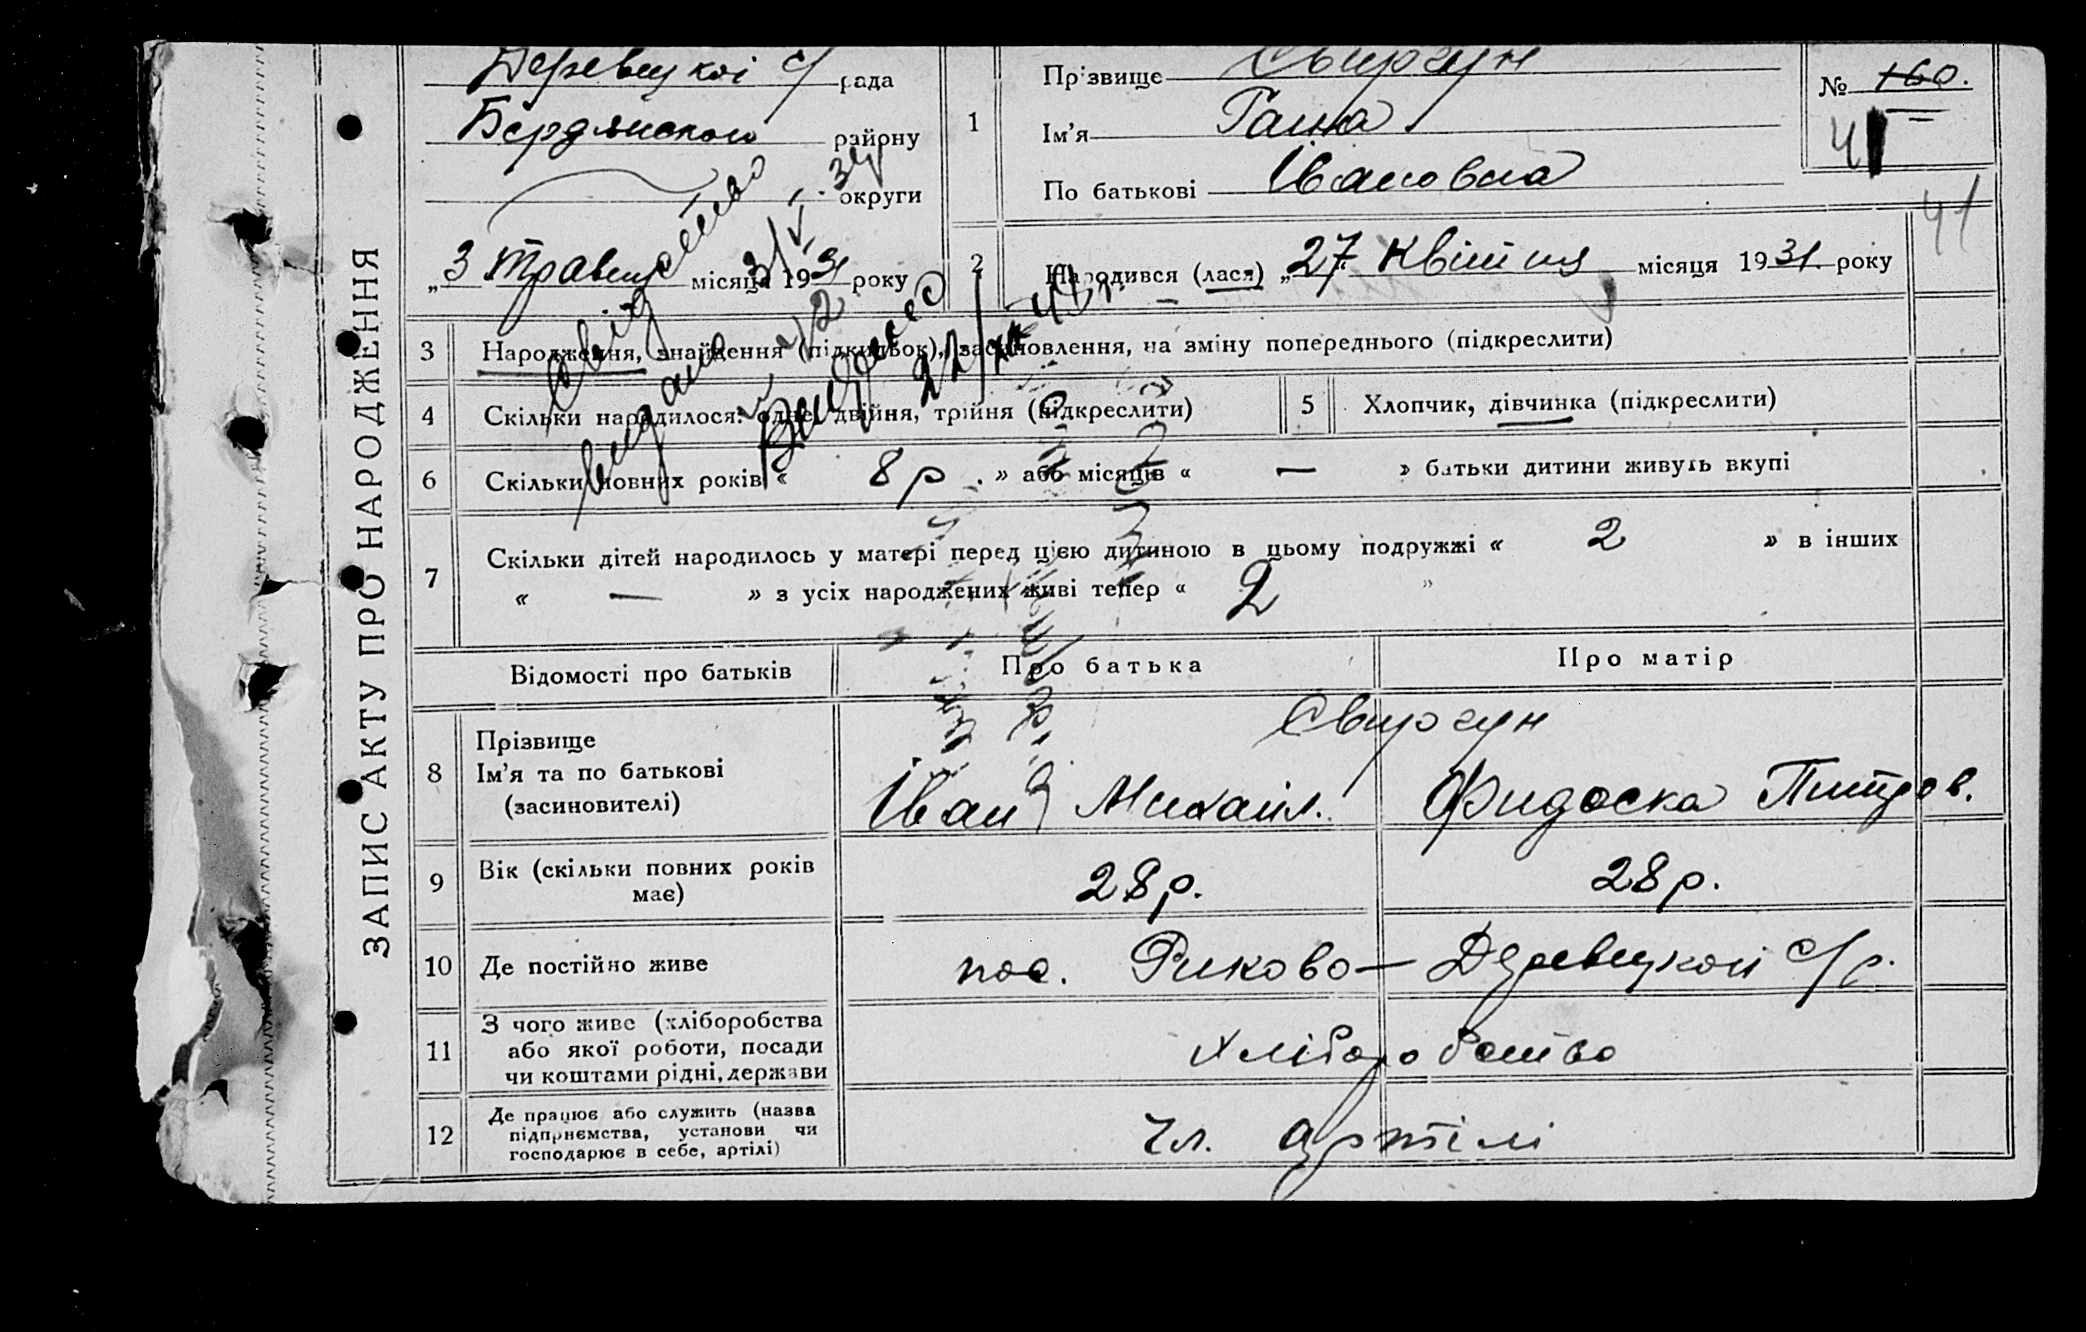 ЗАПИС АКТУ ПРО НАРОДЖЕННЯ
Деревецкої с/ рада
Бердянського району
округи
„3 травня місяця 1931 року
1
Прізвище Свиргун
Ім'я Ганна
По батькові Івановна
№ 160.
41
41
2 Народився (лася) „27 Квітня місяця 1931. року
3 Народження, знайдення (підкидьок), засиновлення, на зміну попереднього (підкреслити)
4 Скільки народилося: одне, двійня, трійня (підкреслити)
5 Хлопчик, дівчинка (підкреслити)
6 Скільки повних років « 8 р . » або місяців « — » батьки дитини живуть вкупі
7 Скільки дітей народилось у матері перед цією дитиною в цьому подружжі « 2 » в інших
« — » з усіх народжених живі тепер « 2 "
Відомості про батьків Про батька Про матір
8 Прізвище Свиргун
Ім'я та по батькові Іван Михаил. Фидоска Питров.
(засиновителі)
9 Вік (скільки повних років має) 28 р. 28 р.
10 Де постійно живе пос. Риково — Деревецкої с/р.
11 З чого живе (хліборобства
або якої роботи, посади
чи коштами рідні, держави
хліборобство
12 Де працює або служить (назва
підприємства, установи чи
господарює в себе, артілі)
чл. артілі
Свідоцтво
видано